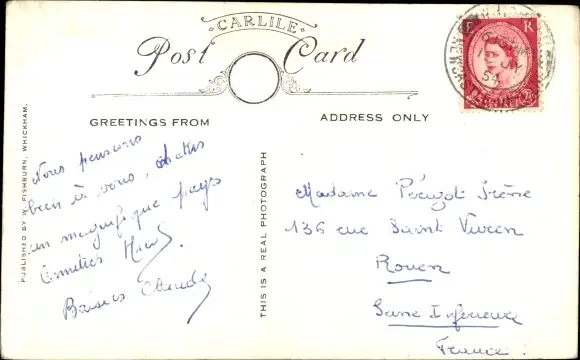 CARLILE
Post Card
E R
2½
54
GREETINGS FROM
ADDRESS ONLY
PUBLISHED BY W. FISHBURN, WHICKHAM.
THIS IS A REAL PHOTOGRAPH
Nous pensons
bien à vous, dans
un magnifique pays
Amitiés
Baisers Claude
Madame Irène
136 rue Saint Vivien
Rouen
Seine Inférieure
France.